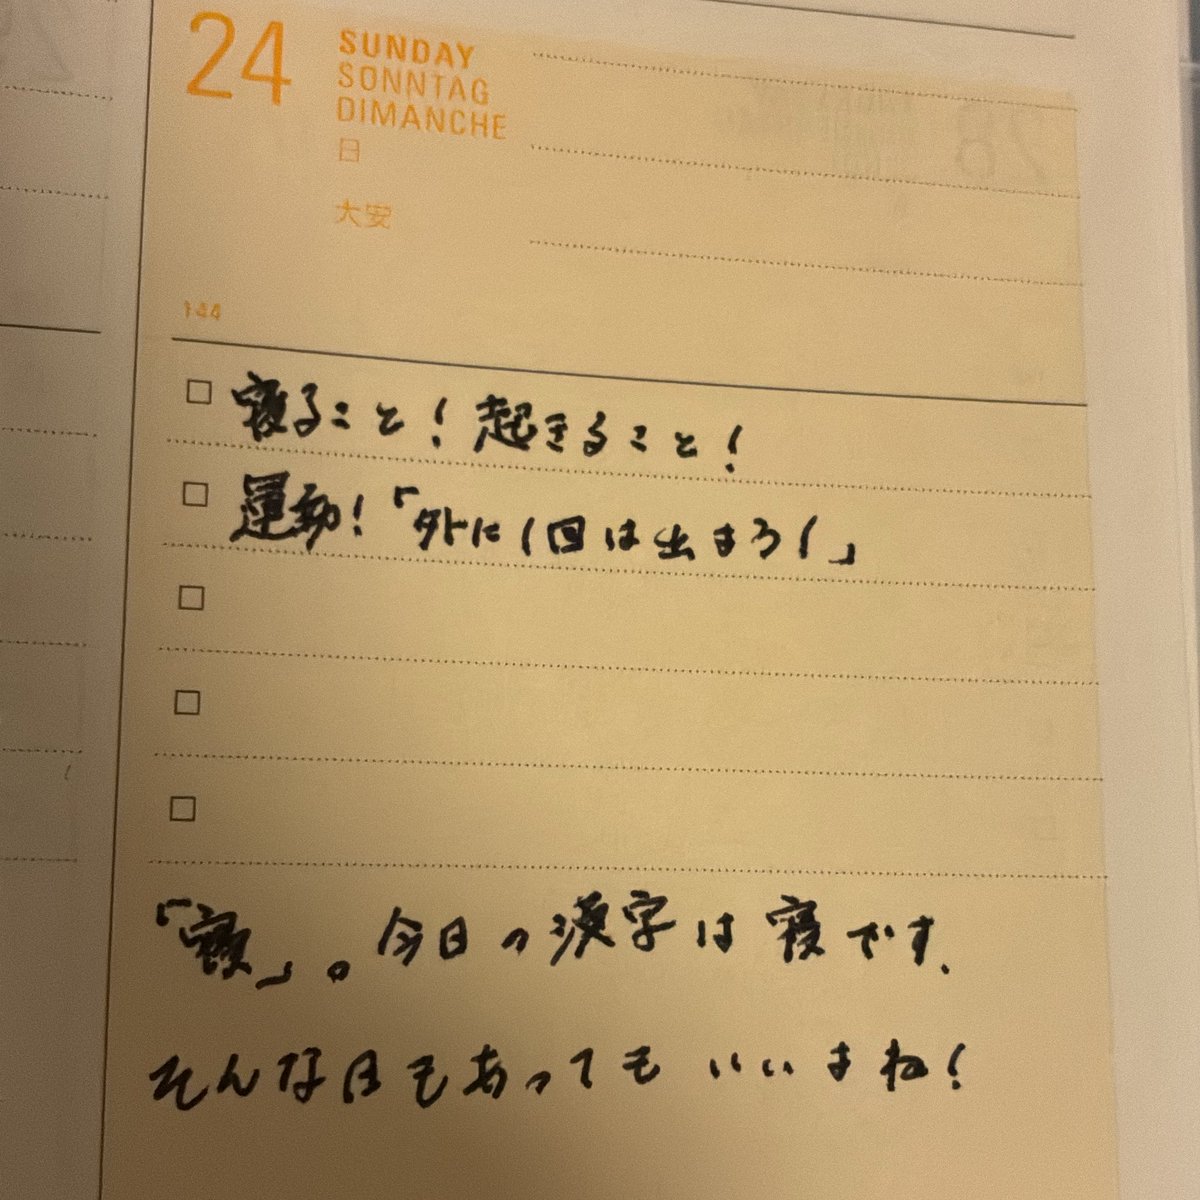 24
SUNDAY
SONNTAG
DIMANCHE
日
大安
144
寝ること！起きること！
運動！「外に1回は出まろう！」
「寝」。今日の漢字は寝です、
そんな日もあってもいいまね！
28